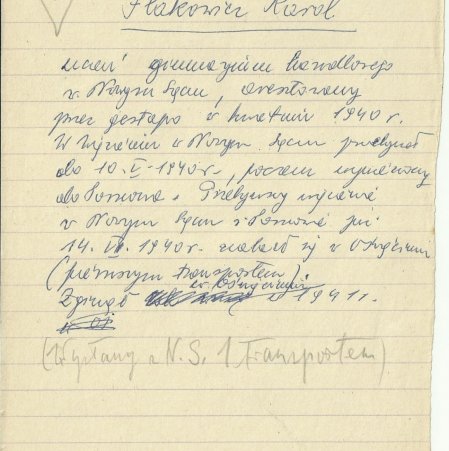 Flakowicz Karol
uczeń gimnazjum handlowego
w Nowym Sączu, aresztowany
przez gestapo w kwietniu 1940 r.
W więzieniu w Nowym Sączu przebywał
do 10.V-1940 r., poczem wywieziony
do Tarnowa. Przebywszy więzienie
w Nowym Sączu i Tarnowie już
14. VI. 1940 r. znalazł się w Oświęcimiu
(pierwszym transportem)
w Oświęcimiu
Zginął w 1941 r.
(Wysłany z N. S. 1 transportem)